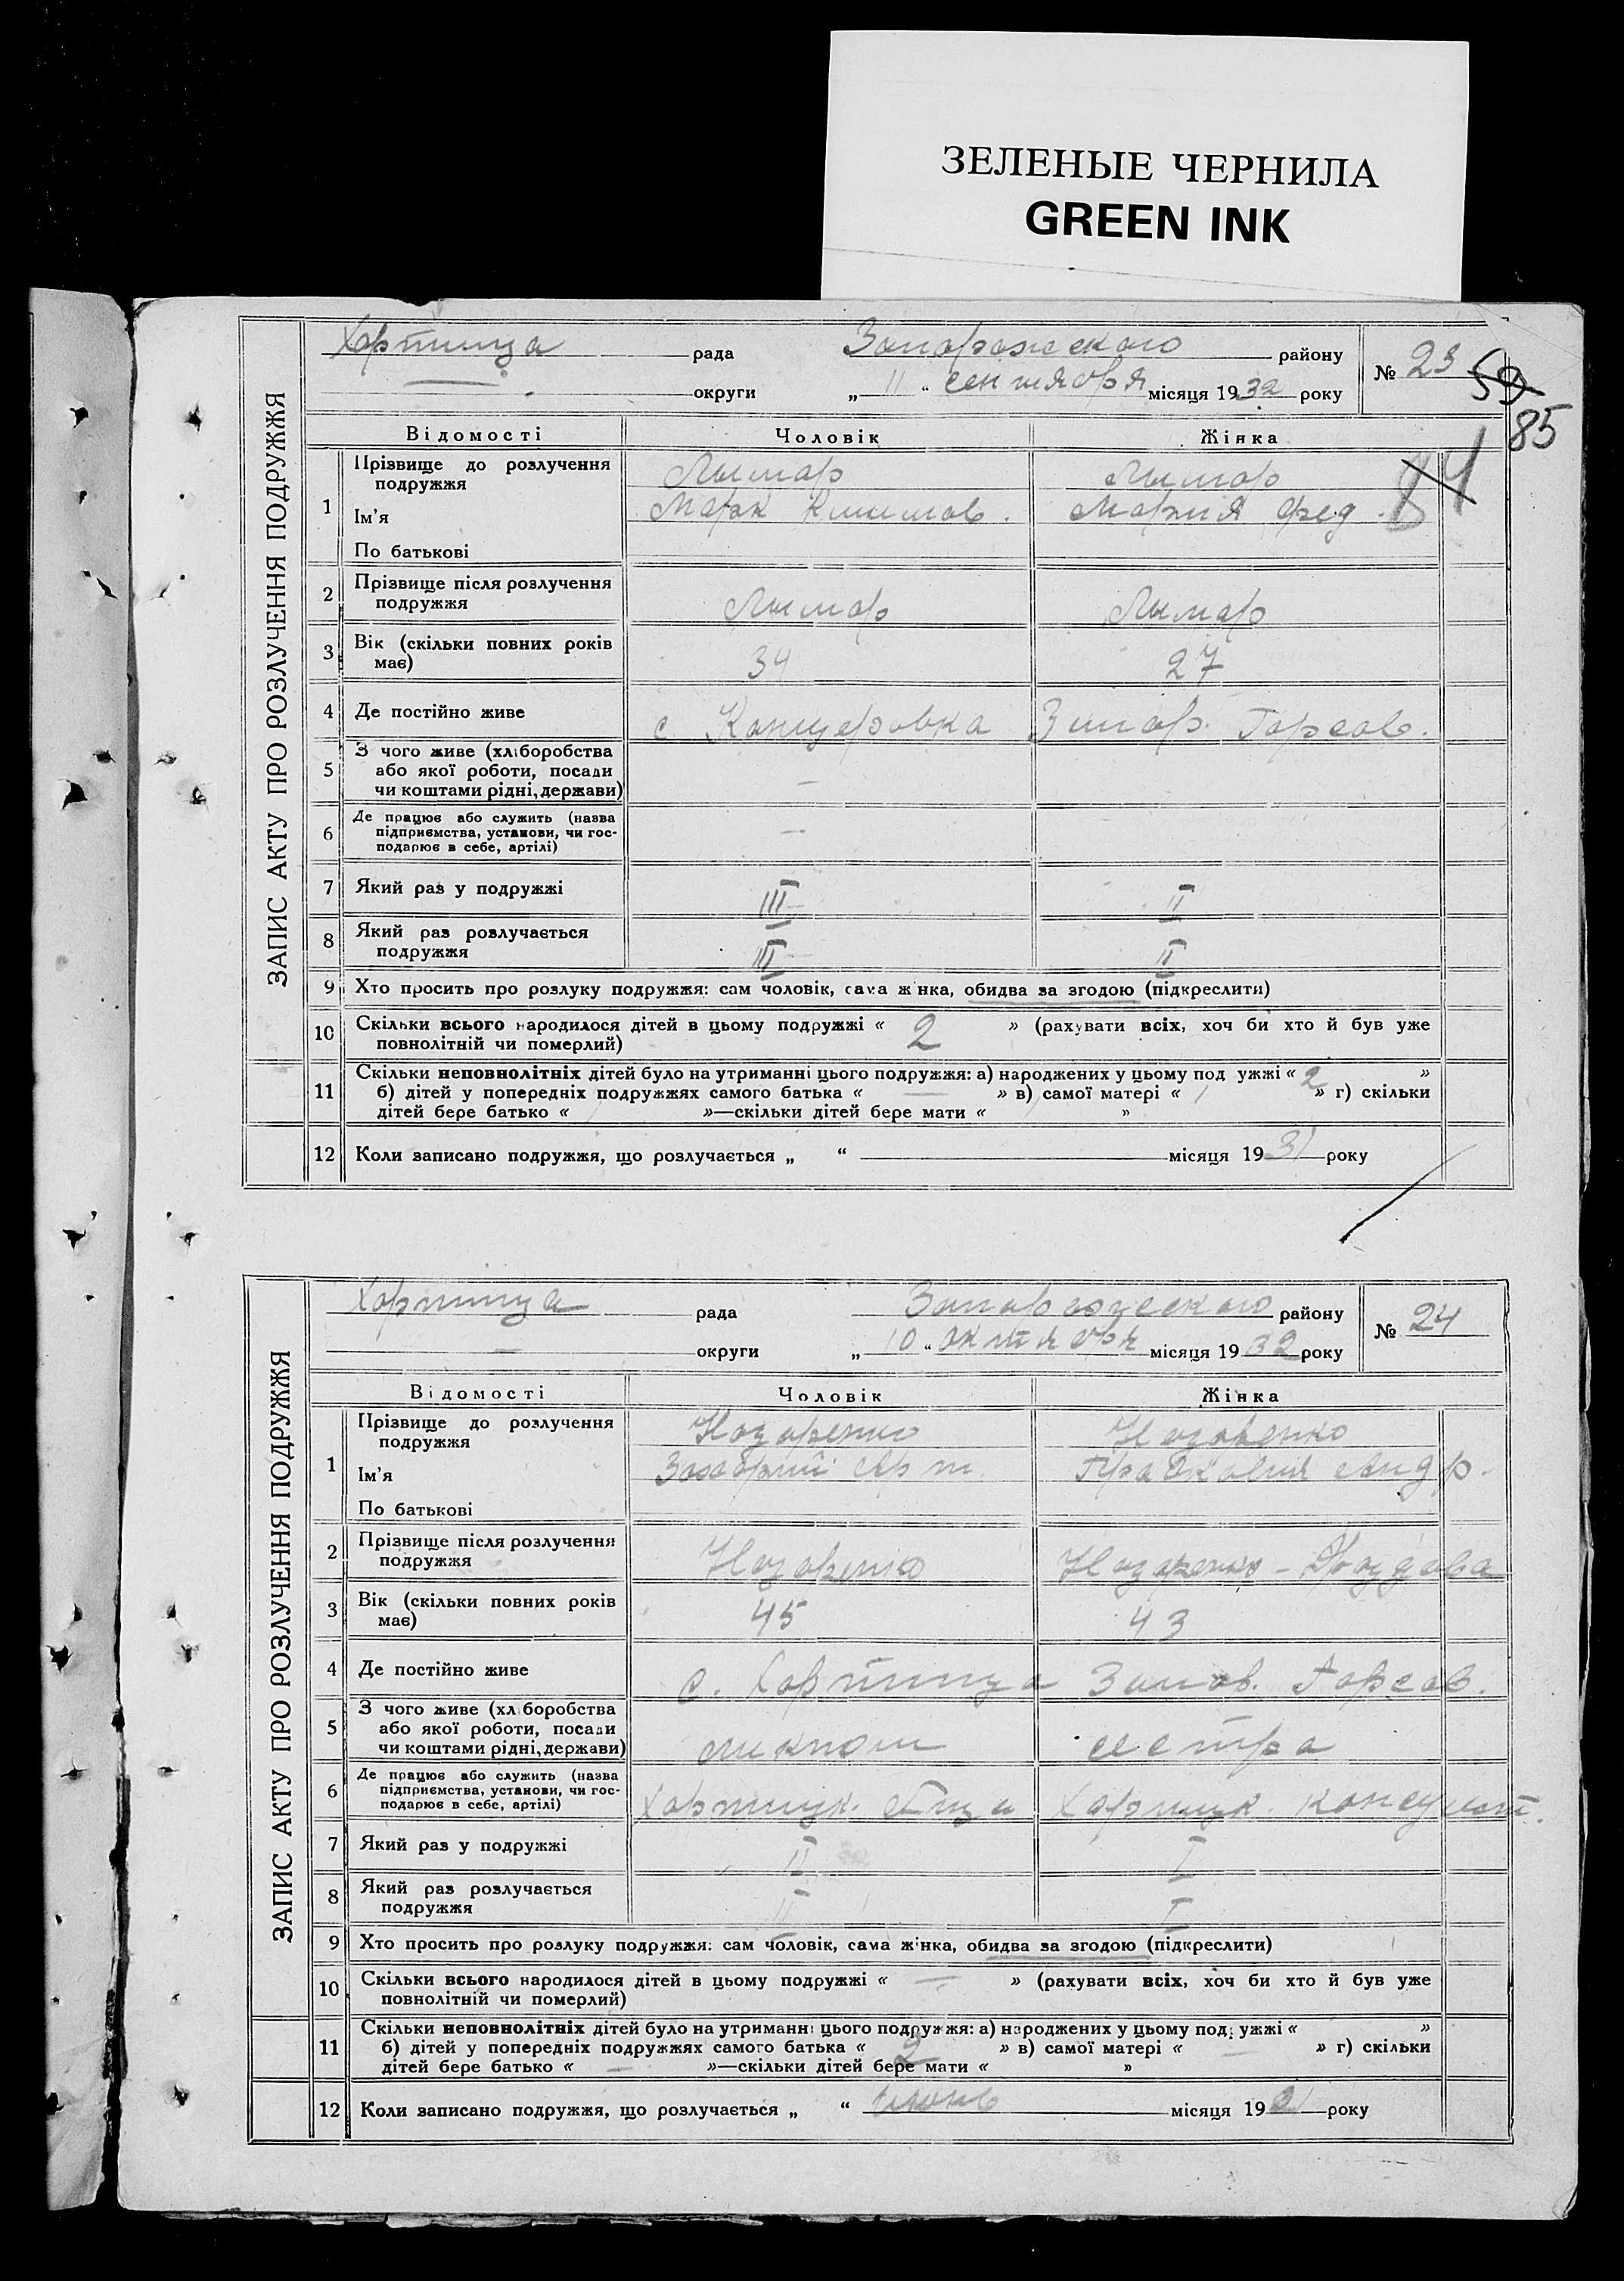 ЗЕЛЕНЫЕ ЧЕРНИЛА
GREEN INK
ЗАПИС АКТУ ПРО РОЗЛУЧЕННЯ ПОДРУЖЖЯ
Хортица рада Запорожского району № 23 59
округи „ 11 “ сентября місяця 1932 року
85
Відомості Чоловік Жінка
84
1 Прізвище до розлучення подружжя Лымар Лымар
Ім’я Марк Климов. Мария Фед.
По батькові
2 Прізвище після розлучення
подружжя Лымар Лымар
3 Вік (скільки повних років
має) 34 27
4 Де постійно живе с Канцеровка Запор. Горсов.
5 З чого живе (хліборобства
або якої роботи, посади
чи коштами рідні, держави) —
6 Де працює або служить (назва
підприємства, установи, чи гос-
подарює в себе, артілі) —
7 Який раз у подружжі III II
8 Який раз розлучається
подружжя III II
9 Хто просить про розлуку подружжя: сам чоловік, сама жінка, обидва за згодою (підкреслити)
10 Скільки всього народилося дітей в цьому подружжі « 2 » (рахувати всіх, хоч би хто й був уже
повнолітній чи померлий)
11 Скільки неповнолітніх дітей було на утриманні цього подружжя: а) народжених у цьому подружжі « 2 »
б) дітей у попередніх подружжях самого батька « — » в) самої матері « 1 » г) скільки
дітей бере батько « »—скільки дітей бере мати « »
12 Коли записано подружжя, що розлучається „ “ місяця 1931 року
ЗАПИС АКТУ ПРО РОЗЛУЧЕННЯ ПОДРУЖЖЯ
Хортица рада Запорожеского району № 24
— округи „ 10 “ октября місяця 1932 року
Відомості Чоловік Жінка
1 Прізвище до розлучення
подружжя Назаренко Назаренко
Ім’я Захарий Арт Прасковия Андр.
По батькові
2 Прізвище після розлучення
подружжя Назаренко Назаренко –
3 Вік (скільки повних років
має) 45 43
4 Де постійно живе с. Хортица Запов. Горсов.
5 З чого живе (хліборобства
або якої роботи, посади
чи коштами рідні, держави) ликпом сестра
6 Де працює або служить (назва
підприємства, установи, чи гос-
подарює в себе, артілі) Хортицк. Хортицк. консульт.
7 Який раз у подружжі II I
8 Який раз розлучається
подружжя II I
9 Хто просить про розлуку подружжя: сам чоловік, сама жінка, обидва за згодою (підкреслити)
10 Скільки всього народилося дітей в цьому подружжі « — » (рахувати всіх, хоч би хто й був уже
повнолітній чи померлий)
11 Скільки неповнолітніх дітей було на утриманні цього подружжя: а) народжених у цьому подружжі « »
б) дітей у попередніх подружжях самого батька « 2 » в) самої матері « — » г) скільки
дітей бере батько « — »—скільки дітей бере мати « »
12 Коли записано подружжя, що розлучається „ “ июнь місяця 1921 року